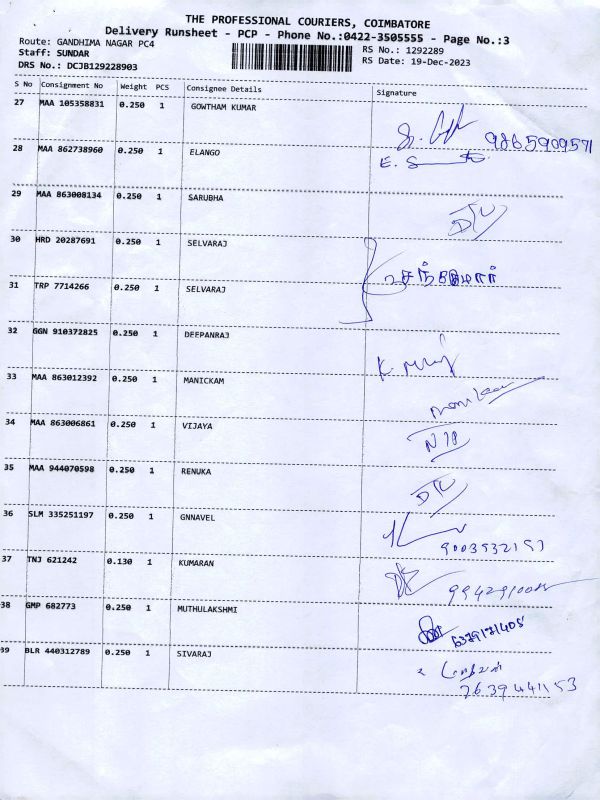 THE PROFESSIONAL COURIERS, COIMBATORE
Delivery Runsheet - PCP - Phone No.:0422-3505555 - Page No.:3
Route: GANDHIMA NAGAR PC4
RS No.: 1292289
Staff: SUNDAR
RS Date: 19-Dec-2023
DRS No.: DCJB129228903
S No Consignment No Weight PCS Consignee Details Signature
27 MAA 105358831 0.250 1 GOWTHAM KUMAR
9865909571
28 MAA 862738960 0.250 1 ELANGO E.
29 MAA 863008134 0.250 1 SARUBHA
30 HRD 20287691 0.250 1 SELVARAJ
31 TRP 7714266 0.250 1 SELVARAJ
32 GGN 910372825 0.250 1 DEEPANRAJ K.
33 MAA 863012392 0.250 1 MANICKAM
34 MAA 863006861 0.250 1 VIJAYA
35 MAA 944070598 0.250 1 RENUKA
36 SLM 335251197 0.250 1 GNNAVEL
37 TNJ 621242 0.130 1 KUMARAN
38 GMP 682773 0.250 1 MUTHULAKSHMI
39 BLR 440312789 0.250 1 SIVARAJ
7639441153